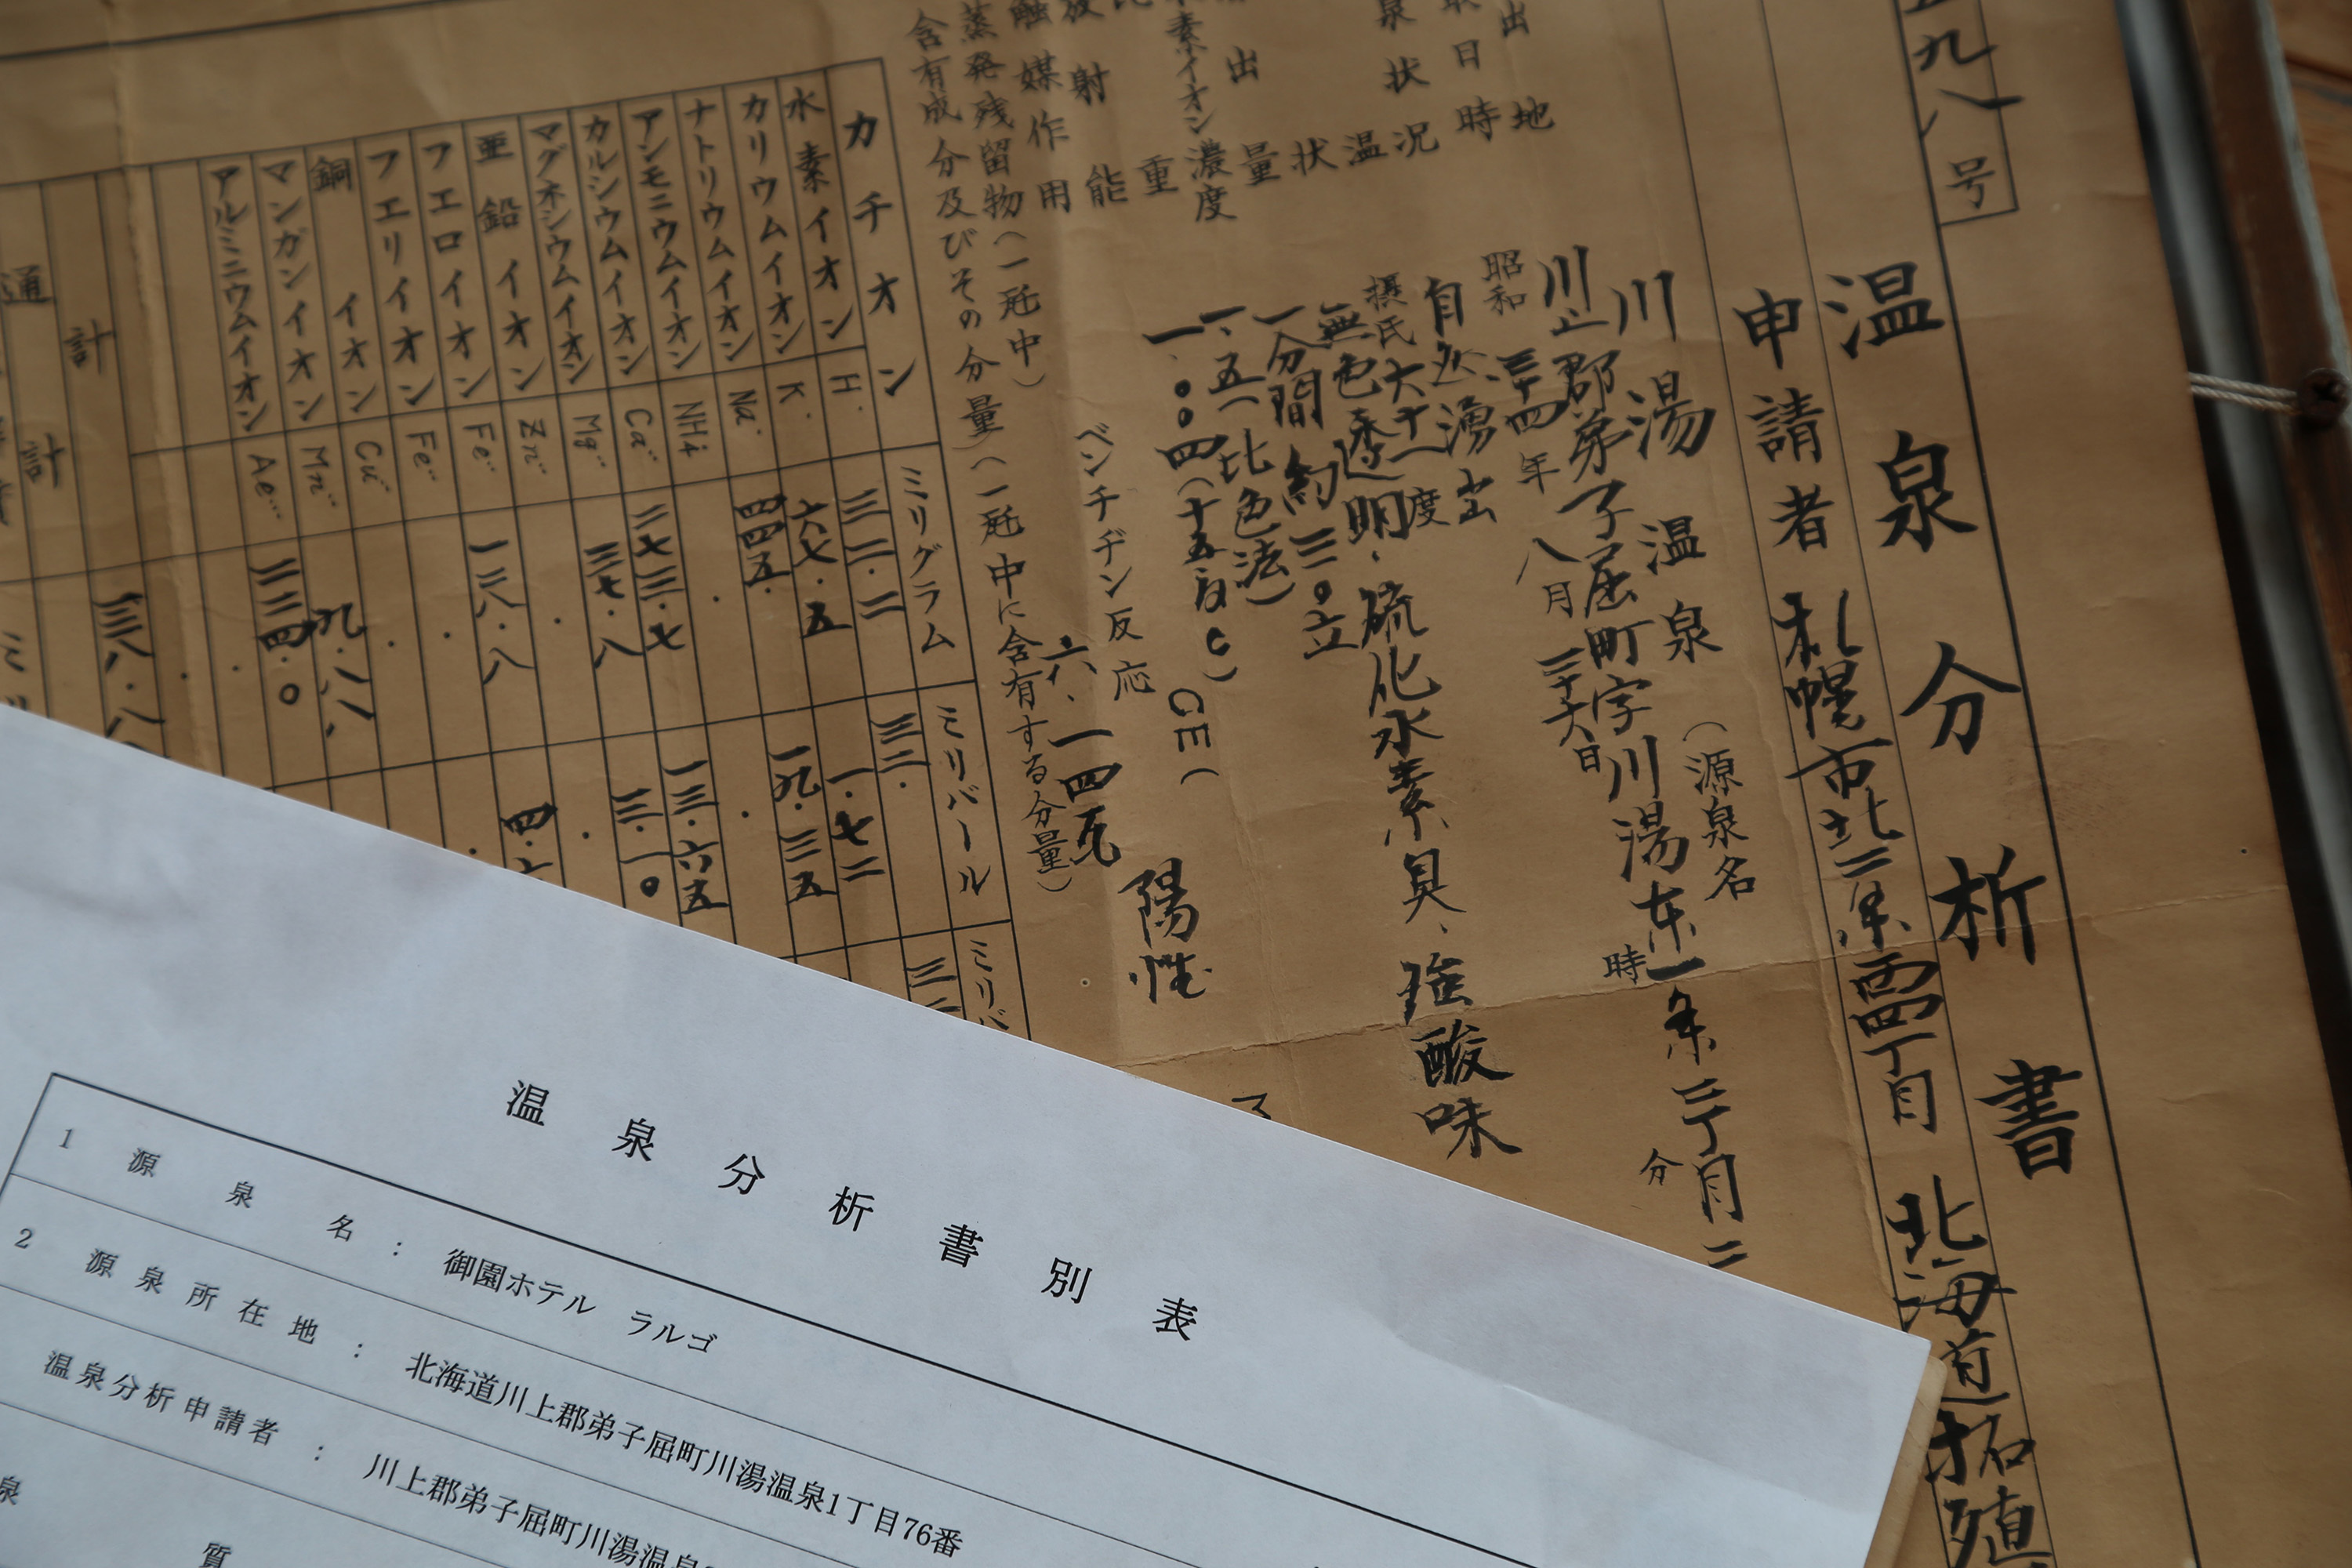 九八号
温泉分析書
申請者 札幌市北二条西四丁目 北海道拓殖
川湯温泉 (源泉名)
川上郡弟子屈町字川湯東一条三丁目二
出地
日時 昭和三十四年八月二十六日 時 分
泉状況 自然湧出
温 摂氏六十一度
状 無色透明、硫化水素臭、強酸味
出量 一分間約三〇立
素イオン濃度 一、五(比色法)
重 一.〇〇四(十五度C)
射能
触媒作用 ベンチヂン反応 陽性
GE(
蒸発残留物(一瓩中) 六、一四瓦
含有成分及びその分量(一瓩中に含有する分量)
カチオン ミリグラム ミリバール ミリバ
水素イオン H 三二.二 三二.
カリウムイオン K 六七.五 一.七二
ナトリウムイオン Na 四四五. 一九.三五
アンモニウムイオン NH4 . .
カルシウムイオン Ca 二七三.七 一三.六五
マグネシウムイオン Mg 三七.八 三.一〇
亜鉛イオン Zn . .
フエロイオン Fe 一三八.八 四.
フエリイオン Fe . .
銅イオン Cu .
マンガンイオン Mn 九.八八
アルミニウムイオン Ae 三三四.〇
計
通計
温泉分析書別表
1 源泉名 : 御園ホテル ラルゴ
2 源泉所在地 : 北海道川上郡弟子屈町川湯温泉1丁目76番
温泉分析申請者 : 川上郡弟子屈町川湯温泉
泉
質